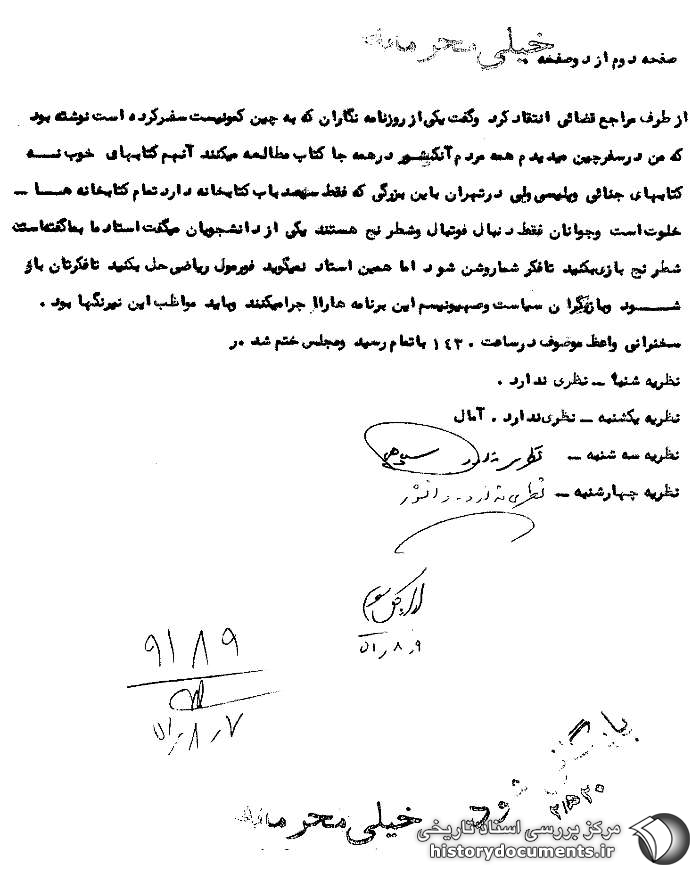 خیلی محرمانه
صفحه دوم از دوصفحه
از طرف مراجع قضائی انتقاد کرد وگفت یکی از روزنامه نگاران که به چین کمونیست سفرکرده است نوشته بود
که من درسفرچین میدیدم همه مردم آنکشور درهمه جا کتاب مطالعه میکنند آنهم کتابهای خوب نـــه
کتابهای جنائی وپلیسی ولی درتهران باین بزرگی که فقط سیصد باب کتابخانه دارد تمام کتابخانه هـــا ــ
خلوت است وجوانان فقط دنبال فوتبال وشطرنج هستند یکی از دانشجویان میگفت استاد ما بماگفته است
شطرنج بازی بکنید تافکر شما روشن شود اما همین استاد نمیگوید فورمول ریاضی حل بکنید تافکرتان باز
شـــود وبازیگران سیاست وصهیونیسم این برنامه هارا اجرا میکنند وباید مواظب این نیرنگها بود .
سخنرانی واعظ موصوف درساعت ۱٤۳۰ باتمام رسید ومجلس ختم شد .ر
نظریه شنبه ــ نظری ندارد .
نظریه یکشنبه ــ نظری ندارد . آمال
نظریه سه شنبه ــ نظری ندارد سپاهی
نظریه چهارشنبه ــ نظری ندارد . دانشور
۵۱٫۸٫۹
۹۱۸۹
۵۱٫۸٫۷
بایگانی شود
خیلی محرمانه
مرکز بررسی اسناد تاریخی
historydocuments.ir